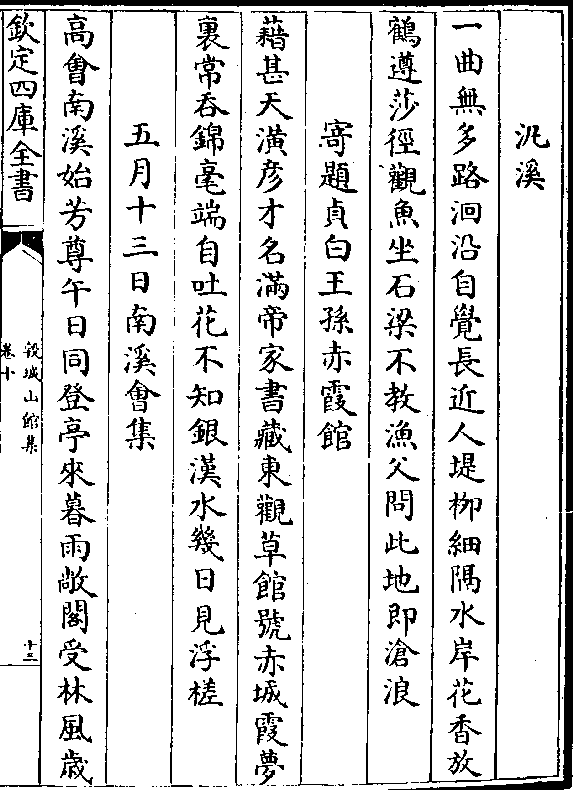 氿溪
一曲無多路洄沿自覺長近人堤栁細隔水岸花香放
鶴遵莎徑觀魚坐石梁不教漁父問此地即滄浪
寄題貞白王孫赤霞館
藉甚天潢彦才名滿帝家書藏東觀草館號赤城霞夢
裏常吞錦毫端自吐花不知銀漢水幾日見浮槎
五月十三日南溪會集
高會南溪始芳尊午日同登亭來暮雨敞閣受林風歳
欽定四庫全書
穀城山館集
卷十
十三